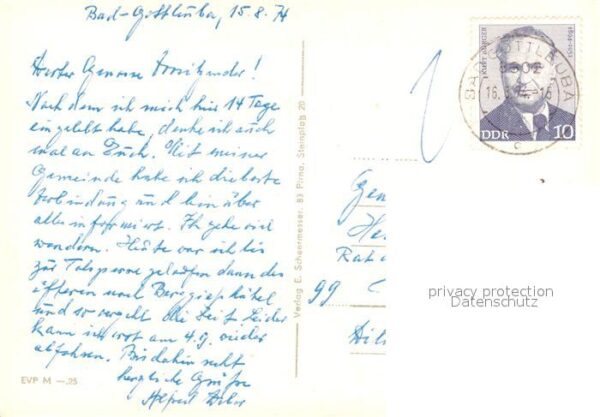 Bad-Gottleuba, 15.8.74
Werter Genosse Vorsitzender!
Nach dem ich mich hier 14 Tage
eingelebt habe, denke ich auch
mal an Euch. Mit meiner
Gemeinde habe ich die beste
Verbindung und bin über
alles informiert. Ich gehe viel
wandern. Heute war ich bis
zur Talsperre gelaufen dann des
öfteren nach Berggießhübel
und so vergeht die Zeit. Leider
kann ich erst am 4.9. wieder
abfahren. Bis dahin recht
herzliche Grüße
Alfred
EVP M —,25
Verlag E. Schaarmesser, 83 Pirna, Steinplatz 20
BAD GOTTLEUBA
8302
16.
DDR 10
Gen
He
Rat d
99
privacy protection
Datenschutz